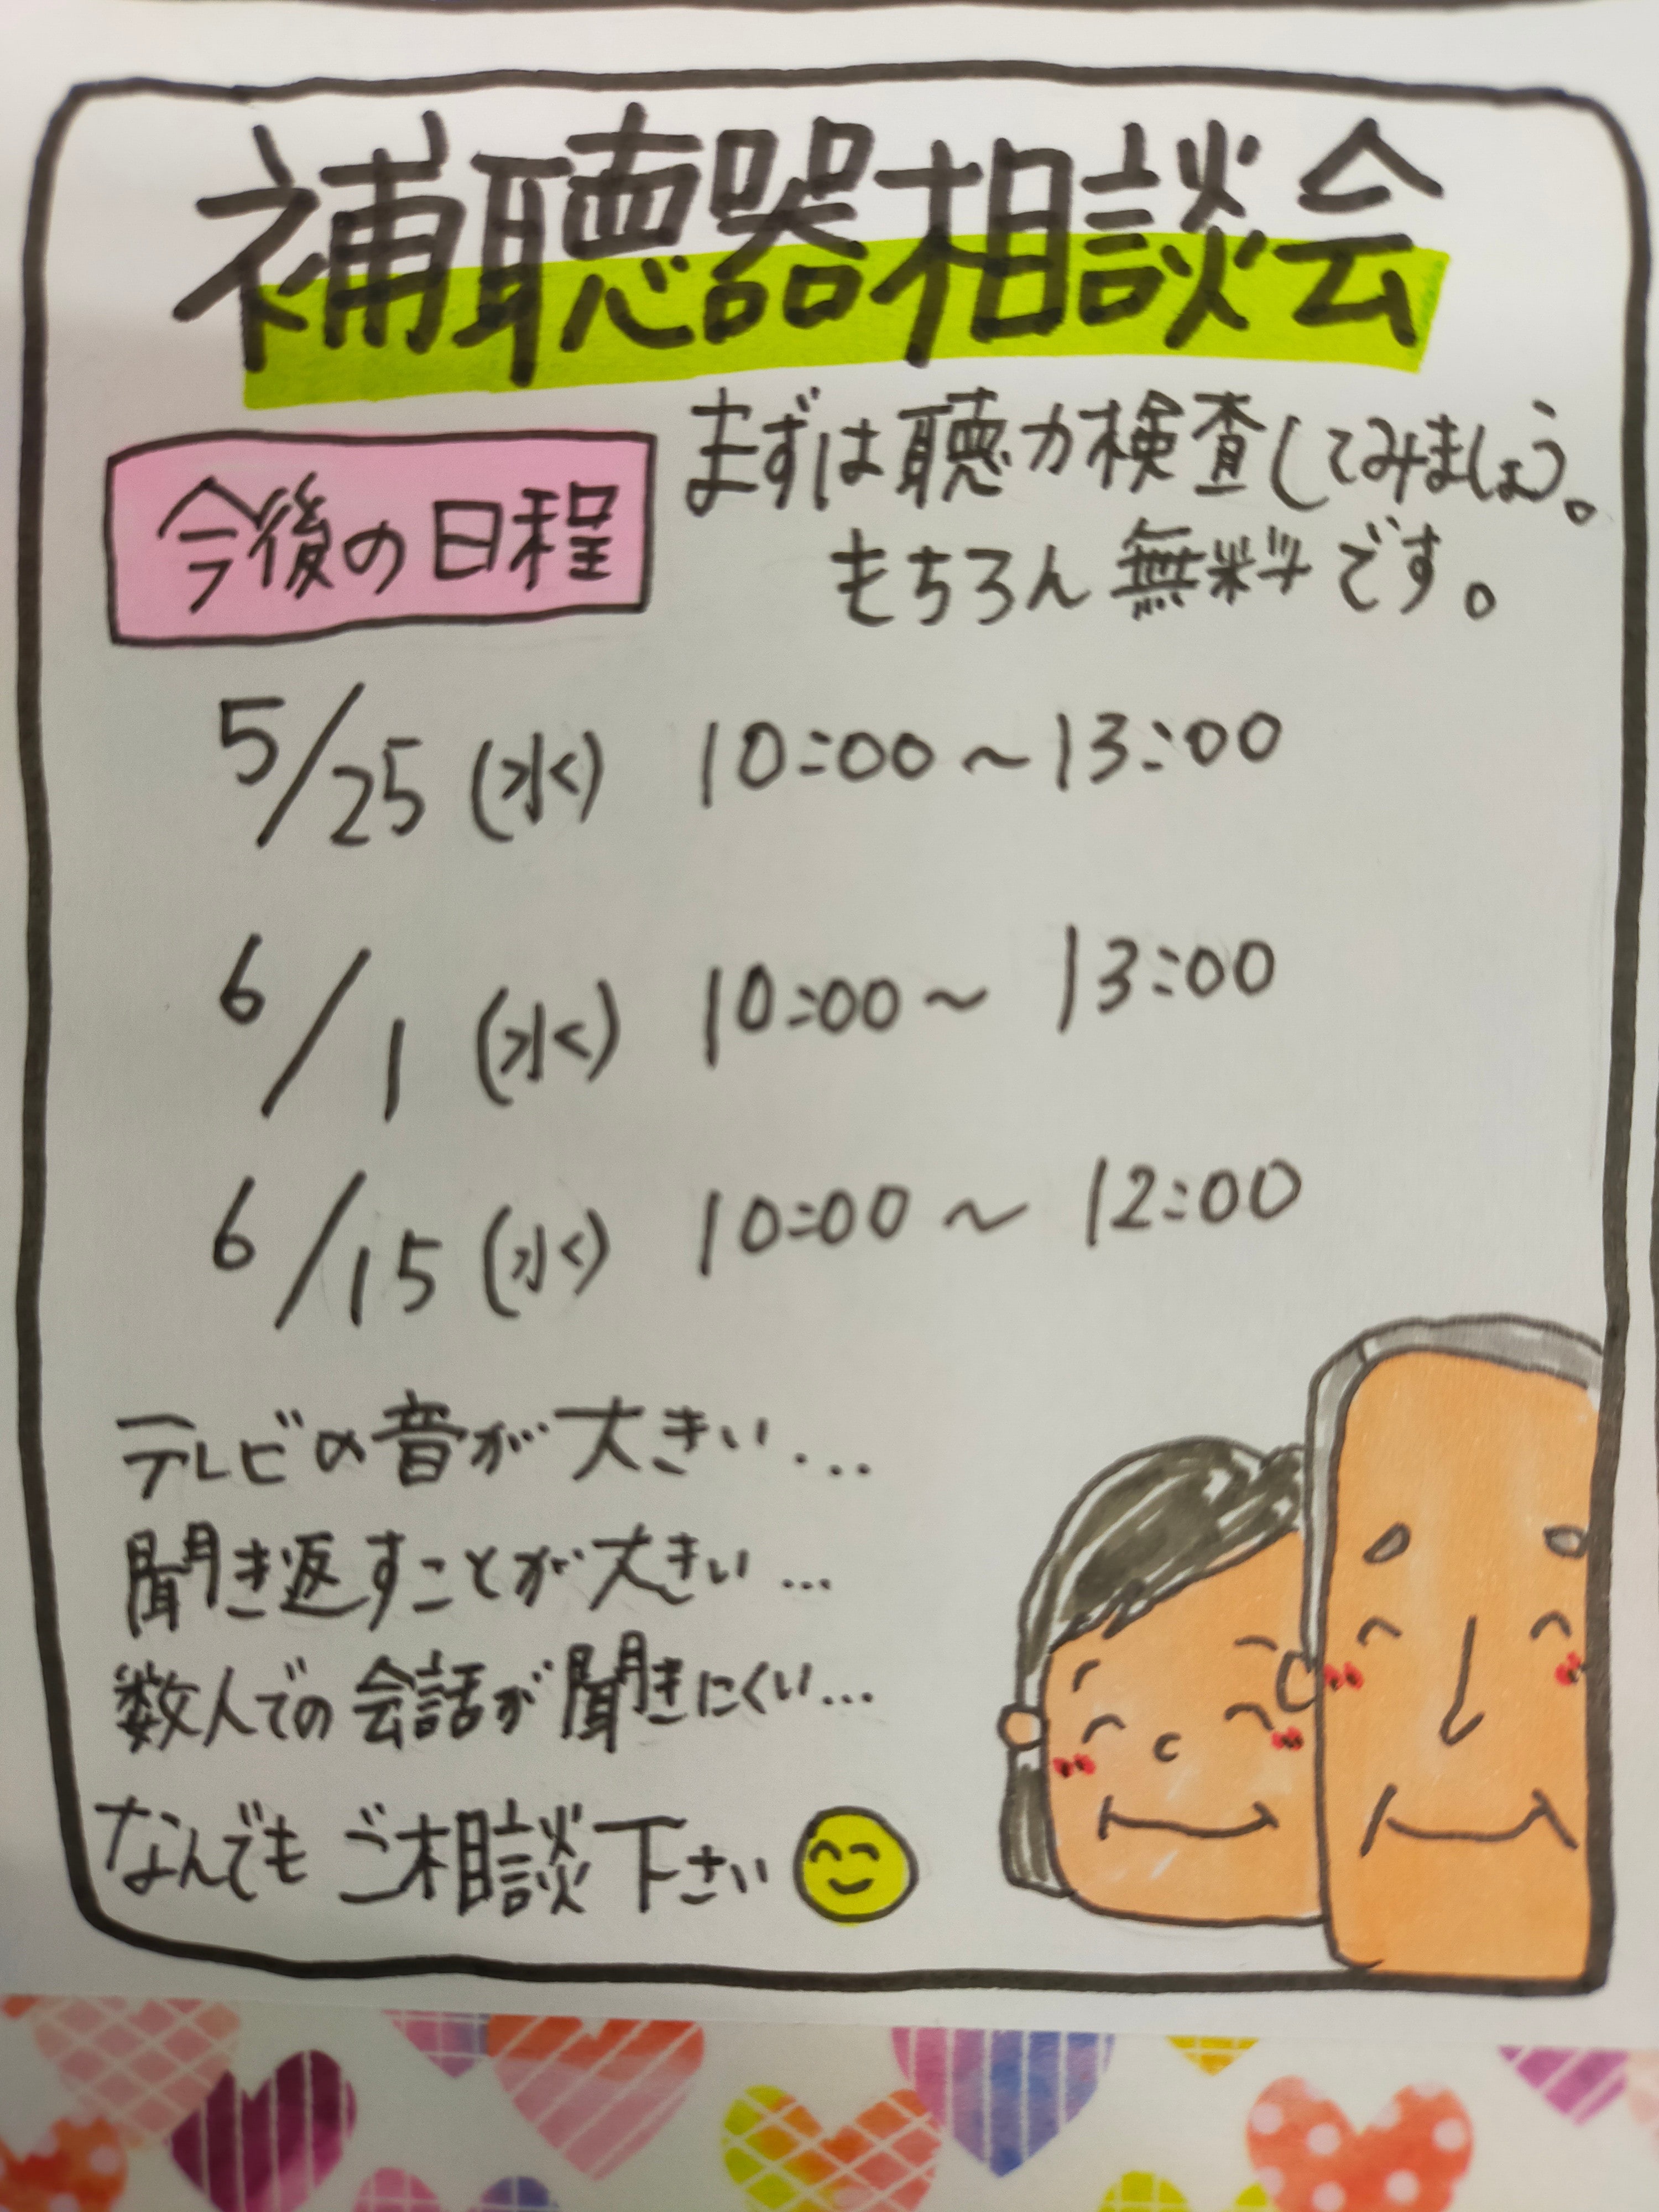 補聴器相談会
まずは聴力検査してみましょう。
もちろん無料です。
今後の日程
5/25 (水) 10:00~13:00
6/1 (水) 10:00~13:00
6/15 (水) 10:00~12:00
テレビの音が大きい...
聞き返すことが大きい...
数人での会話が聞きにくい...
なんでもご相談下さい